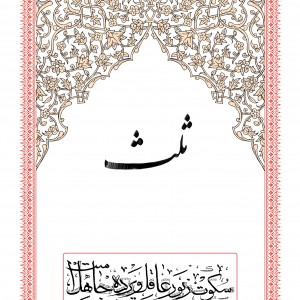 ثلث
سکوت زیور عاقل و پرده جاهل است